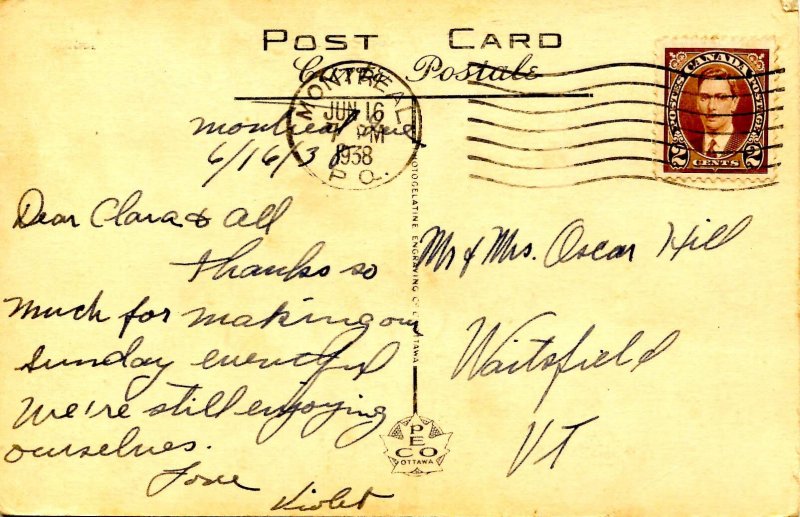 POST CARD
Carte Postale
MONTREAL
JUN 16
7 PM
1938
P.O.
CANADA
POSTES POSTAGE
2 CENTS 2
Montreal Que
6/16/38
Dear Clara & All
Thanks so
much for making our
Sunday eventful
We're still enjoying
ourselves.
Love
Violet
PHOTOGELATINE ENGRAVING CO. L. OTTAWA
PECO
OTTAWA
Mr & Mrs. Oscar Hill
Waitsfield
VT